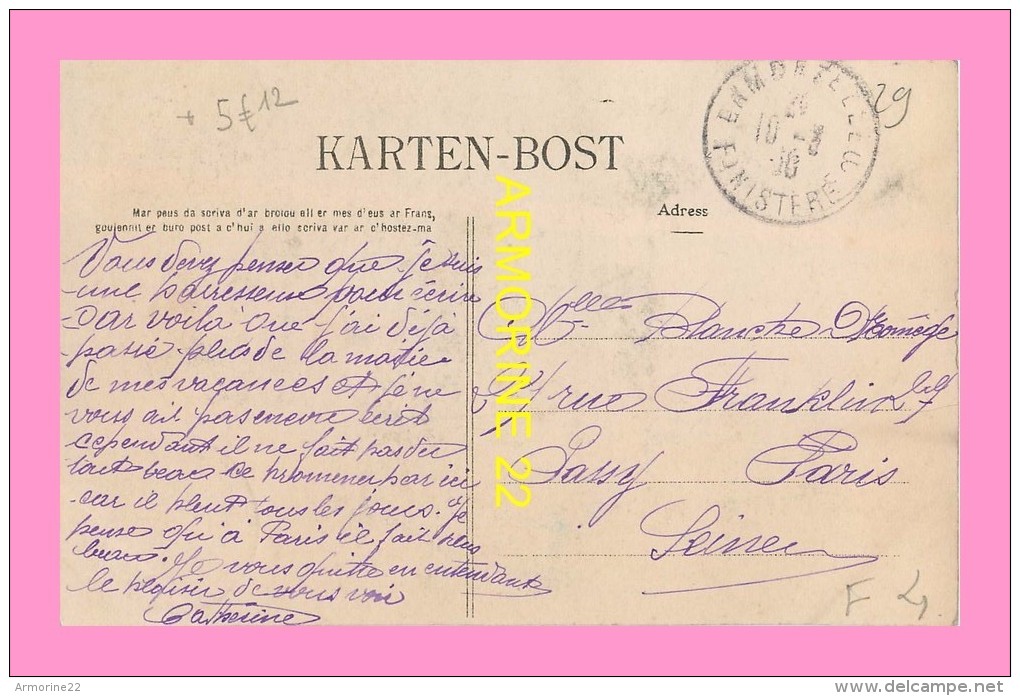 + 5€12
29
BAMDATZELLEU
FINISTERE
KARTEN-BOST
Mar peus da scriva d'ar brolou all er mes d'eus ar Frans,
goulennit er buro post a c'hui a ello scriva var ar c'hostez-ma
Adress
Vous devez penser que je suis
une paresseuse pour écrire
car voilà que j'ai déjà
passé plus de la moitié
de mes vacances et je ne
vous ait pas encore écrit
cependant il ne fait pas du
tout beau se promener par ici
car il pleut tous les jours. Je
pense qu'à Paris il fait plus
beau. Je vous quitte en entendant
le plaisir de vous voir
Catherine
Melle Blanche
rue Franklin
Passy Paris
Seine
F 4
ARMORINE 22
Armorine22
www.delcampe.net